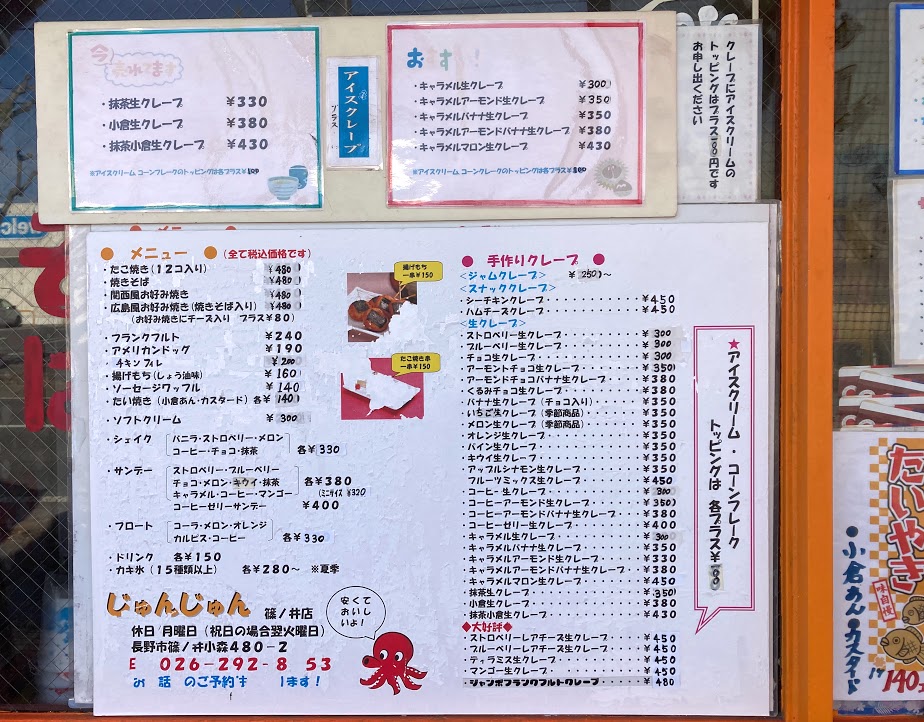 今
売れてます
・抹茶生クレープ ¥330
・小倉生クレープ ¥380
・抹茶小倉生クレープ ¥430
※アイスクリーム コーンフレークのトッピングは各プラス¥100
アイスクレープ
プラス
おすすめ!
・キャラメル生クレープ ¥300
・キャラメルアーモンド生クレープ ¥350
・キャラメルバナナ生クレープ ¥350
・キャラメルアーモンドバナナ生クレープ ¥380
・キャラメルマロン生クレープ ¥430
※アイスクリーム コーンフレークのトッピングは各プラス¥100
クレープにアイスクリームの
トッピングはプラス100円です
お申し出ください
● メニュー ● (全て税込価格です)
・たこ焼き(12コ入り) ¥480
・焼きそば ¥480
・関西風お好み焼き ¥480
・広島風お好み焼き(焼きそば入り) ¥480
(お好み焼きにチース入り プラス¥80)
・フランクフルト ¥240
・アメリカンドッグ ¥190
・チキンフィレ ¥200
・揚げもち(しょう油味) ¥160
・ソーセージワッフル ¥140
・たい焼き(小倉あん・カスタード) 各¥140
・ソフトクリーム ¥300
・シェイク
バニラ・ストロベリー・メロン
コーヒー・チョコ・抹茶
各¥330
・サンデー
ストロベリー・ブルーベリー
チョコ・メロン・キウイ・抹茶
キャラメル・コーヒー・マンゴー
各¥380
(ミニサイズ ¥320)
コーヒーゼリーサンデー ¥400
・フロート
コーラ・メロン・オレンジ
カルピス・コーヒー
各¥330
・ドリンク 各¥150
・カキ氷(15種類以上) 各¥280~ ※夏季
揚げもち
一串¥150
たこ焼き串
一串¥150
じゅんじゅん 篠ノ井店
休日 月曜日(祝日の場合翌火曜日)
長野市篠ノ井小森480-2
E 026-292-8 53
お 話 のご予約す します!
安くて
おいし
いよ!
● 手作りクレープ ●
<ジャムクレープ> ¥250~
<スナッククレープ>
・シーチキンクレープ ¥450
・ハムチースクレープ ¥450
<生クレープ>
・ストロベリー生クレープ ¥300
・ブルーベリー生クレープ ¥300
・チョコ生クレープ ¥300
・アーモントチョコ生クレープ ¥350
・アーモンドチョコバナナ生クレープ ¥380
・くるみチョコ生クレープ ¥380
・バナナ生クレープ(チョコ入り) ¥350
・いちご生クレープ(季節商品) ¥350
・メロン生クレープ(季節商品) ¥350
・オレンジ生クレープ ¥350
・パイン生クレープ ¥350
・キウイ生クレープ ¥350
・アップルシナモン生クレープ ¥350
・フルーツミックス生クレープ ¥450
・コーヒー生クレープ ¥300
・コーヒーアーモンド生クレープ ¥350
・コーヒーアーモンドバナナ生クレープ ¥380
・コーヒーゼリー生クレープ ¥400
・キャラメル生クレープ ¥300
・キャラメルバナナ生クレープ ¥350
・キャラメルアーモンド生クレープ ¥330
・キャラメルアーモンドバナナ生クレープ ¥380
・キャラメルマロン生クレープ ¥450
・抹茶生クレープ ¥350
・小倉生クレープ ¥380
・抹茶小倉生クレープ ¥430
◆大好評◆
・ストロベリーレアチース生クレープ ¥450
・ブルーベリーレアチース生クレープ ¥450
・ティラミス生クレープ ¥450
・マンゴー生クレープ ¥450
・ジャンボフランクフルトクレープ ¥480
★アイスクリーム・コーンフレーク
トッピングは 各プラス¥100
たいやき
味自慢
●小倉あん●カスタード
1ケ 140